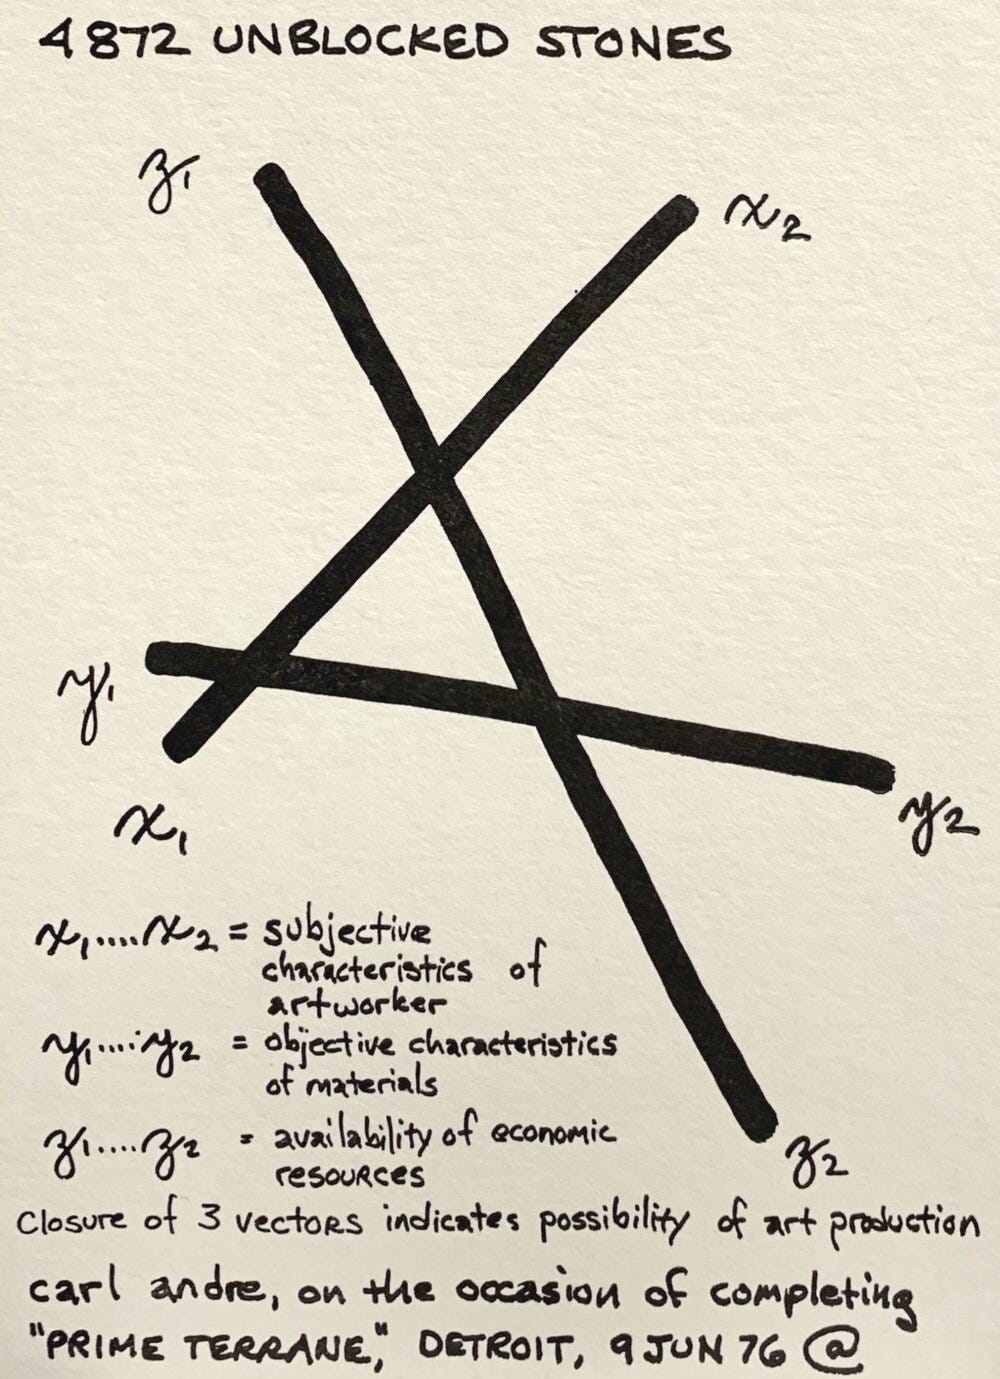 4872 UNBLOCKED STONES
z1
x2
y1
x1
y2
x1....x2 = subjective
characteristics of
artworker
y1....y2 = objective characteristics
of materials
z1....z2 = availability of economic
resources
z2
closure of 3 vectors indicates possibility of art production
carl andre, on the occasion of completing
"PRIME TERRANE," DETROIT, 9 JUN 76 @